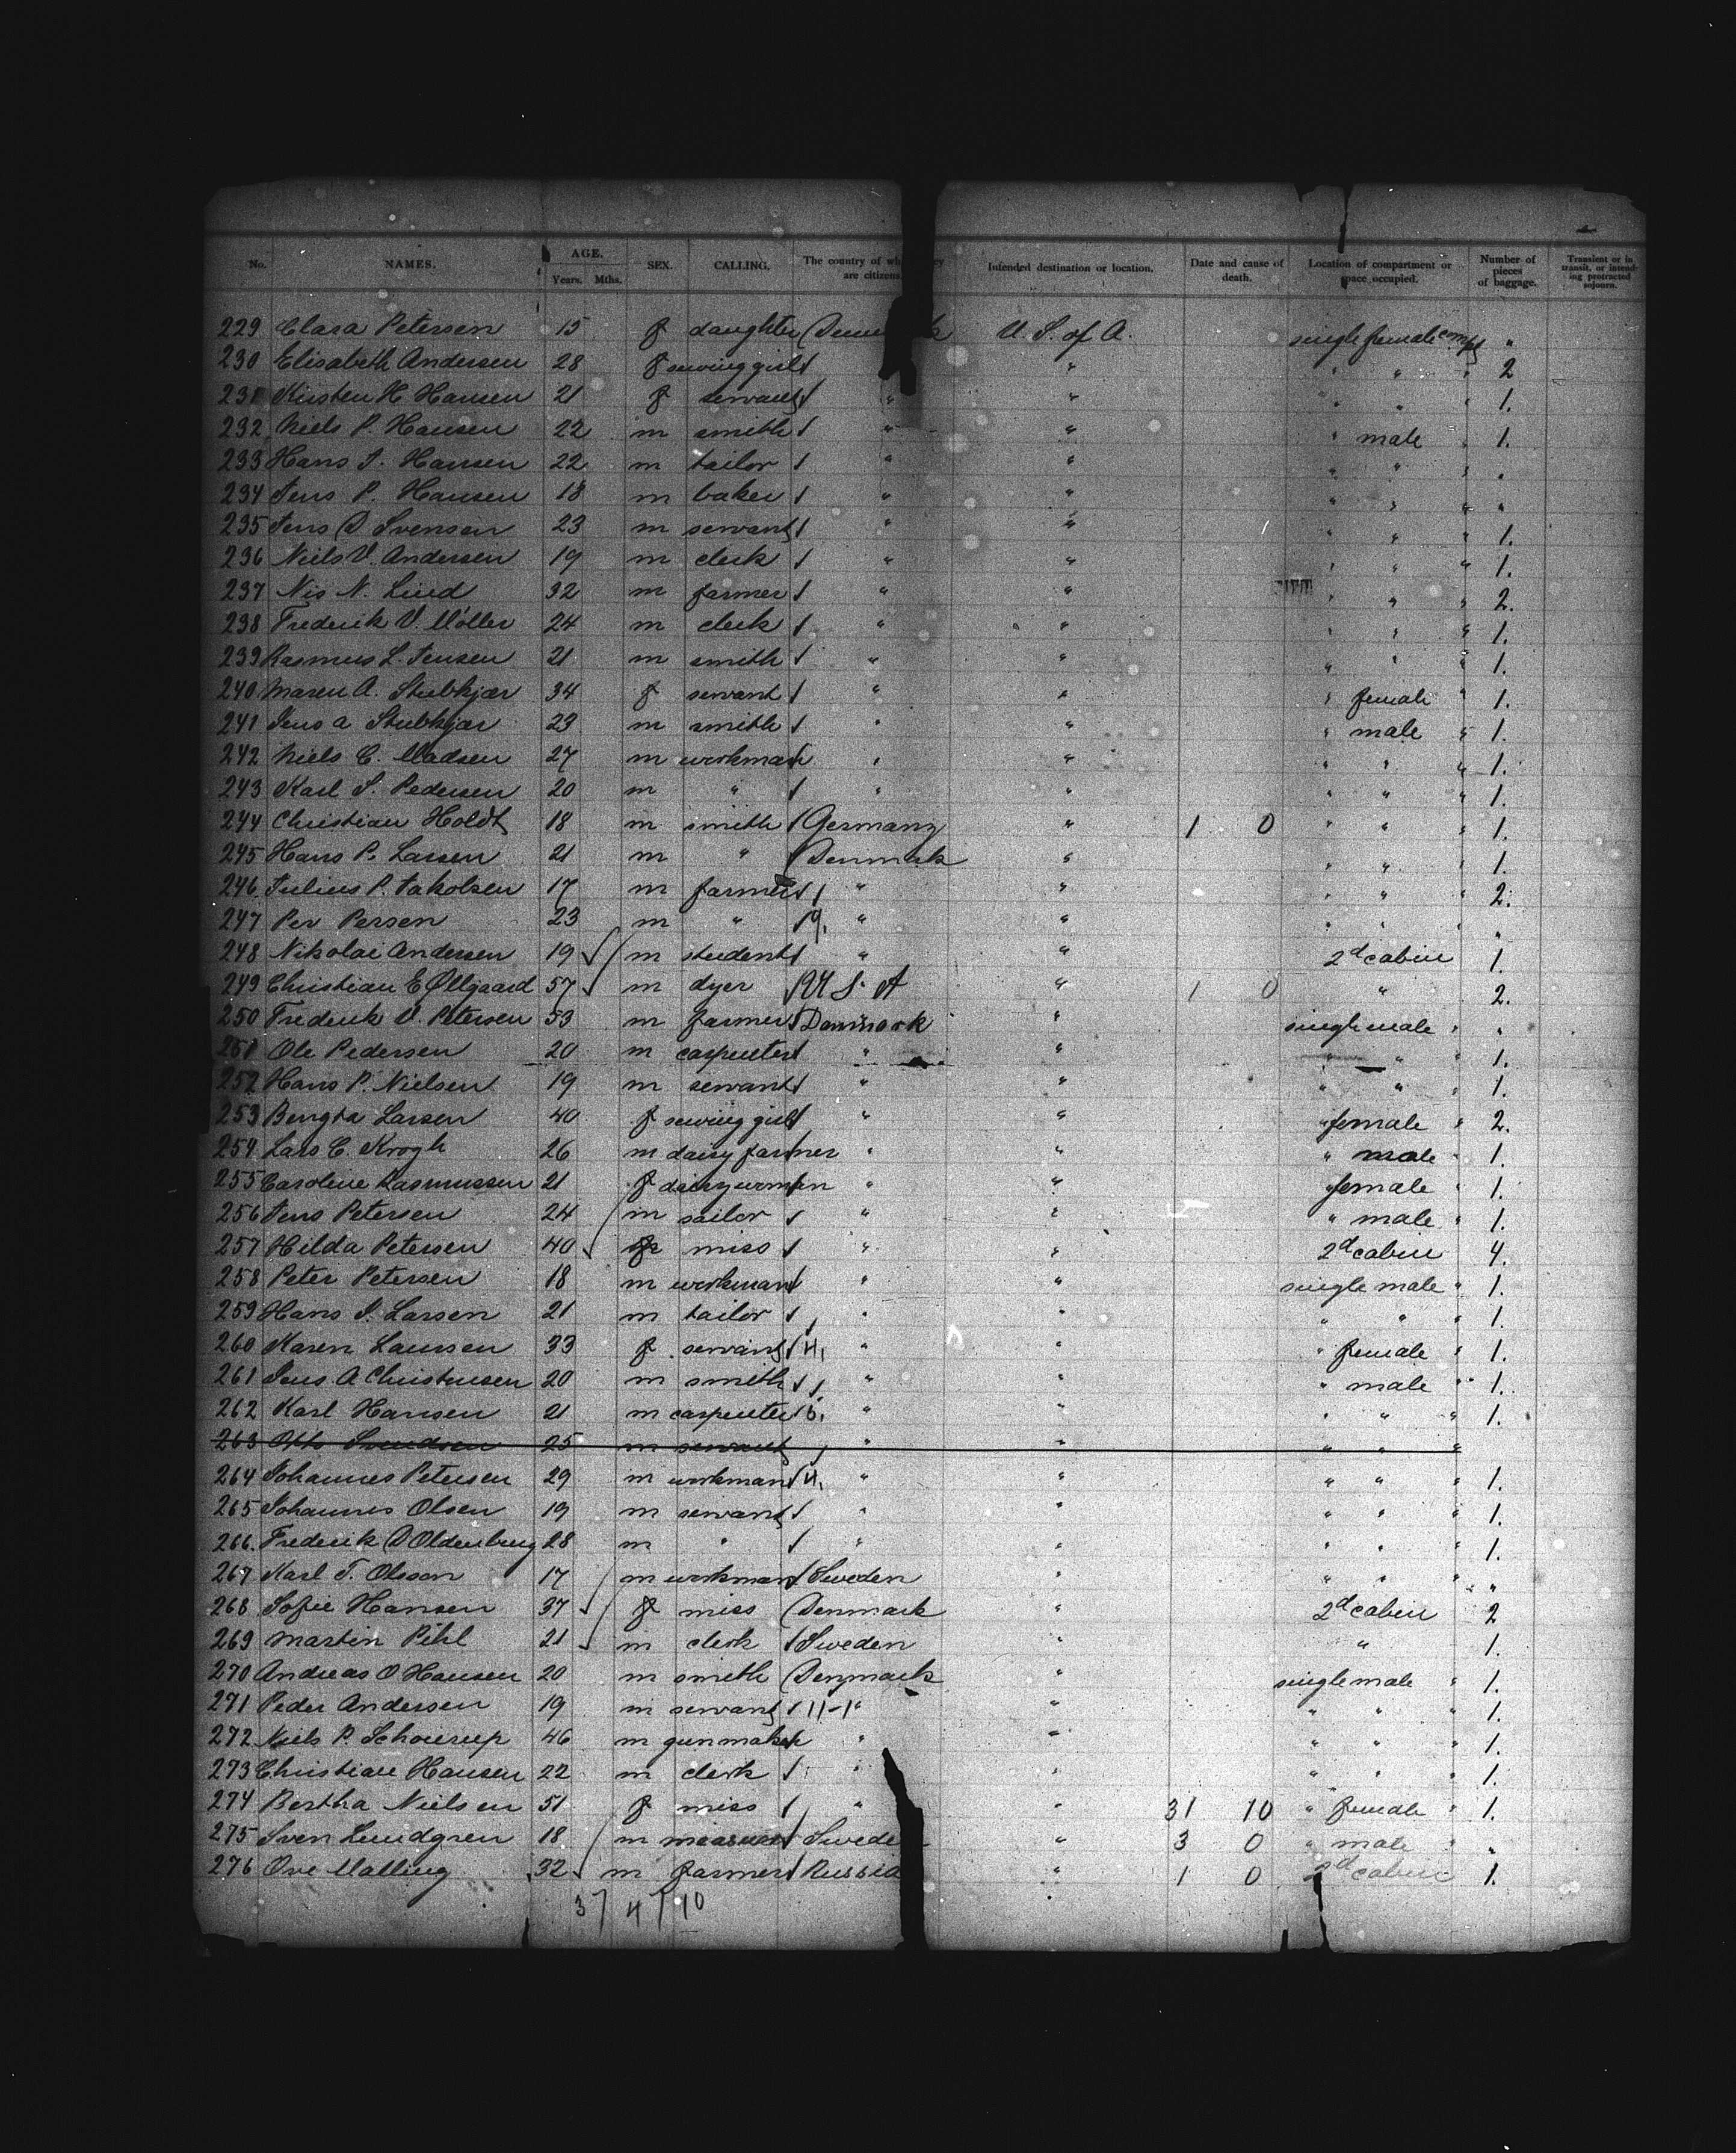 No. NAMES. AGE. Years. Mths. SEX. CALLING. The country of are citizens. Intended destination or location. Date and cause of death. Location of compartment or space occupied. Number of pieces of baggage. Transient or in transit, or intending protracted sojourn.
229 Clara Petersen 15 f daughter U. S. of A. single female "
230 Elisabeth Andersen 28 f sewing girl " " " " " 2
231 Kirsten H Hansen 21 f servant " " " " " 1.
232 Niels P. Hansen 22 m smith " " " male " 1.
233 Hans J. Hansen 22 m tailor " " " " " "
234 Jens P. Hansen 18 m baker " " " " " "
235 Jens D Svensen 23 m servant " " " " " 1.
236 Niels V. Andersen 19 m clerk " " " " " 1.
237 Nis N. Lind 32 m farmer " " " " " 2.
238 Frederik V. Möller 24 m clerk " " " " " 1.
239 Rasmus L. Jensen 21 m smith " " " " " 1.
240 Maren A. Stubkjær 34 f servant " " " female " 1.
241 Jens A Stubkjær 23 m smith " " " male " 1.
242 Niels C. Madsen 27 m workman " " " " " 1.
243 Karl S. Pedersen 20 m " " " " " " 1.
244 Christian Holdt 18 m smith Germany " 1 0 " " " 1.
245 Hans P. Larsen 21 m " Denmark " " " " 1.
246 Julius P. Jakobsen 17 m farmer " " " " " 2.
247 Per Persen 23 m " 9. " " " " "
248 Nikolai Andersen 19 m student " " 2d cabin 1.
249 Christian E Øllgaard 57 m dyer U S. A " 1 0 " 2.
250 Frederik V. Petersen 53 m farmer Danmark " single male " "
251 Ole Pedersen 20 m carpenter " " " " " 1.
252 Hans P. Nielsen 19 m servant " " " " " 1.
253 Bengta Larsen 40 f sewing girl " " " female " 2.
254 Lars C. Krogh 26 m dairy farmer " " " male " 1.
255 Caroline Rasmussen 21 f dairywoman " " " female " 1.
256 Jens Petersen 24 m sailor " " " male " 1.
257 Hilda Petersen 40 f miss " " 2d cabin 4.
258 Peter Petersen 18 m workman " " single male " 1.
259 Hans J. Larsen 21 m tailor " " " " " 1.
260 Karen Laursen 33 f servant 4. " " " female " 1.
261 Jens A Christensen 20 m smith " " " male " 1.
262 Karl Hansen 21 m carpenter 6. " " " " " 1.
263 Otto Svendsen 25 m servant " " " " "
264 Johannes Petersen 29 m workman 4. " " " " " 1.
265 Johannes Olsen 19 m servant " " " " " 1.
266. Frederik D Oldenburg 28 m " " " " " " 1.
267 Karl T. Olsson 17 m workman Sweden " " " " "
268 Sofie Hansen 37 f miss Denmark " 2d cabin 2
269 Martin Pihl 21 m clerk Sweden " " 1.
270 Andreas O Hansen 20 m smith Denmark " single male " 1.
271 Peder Andersen 19 m servant 11-1 " " " " " 1.
272 Niels P. Schourup 46 m gunmaker " " " " " 1.
273 Christian Hansen 22 m clerk " " " " " 1.
274 Bertha Nielsen 51 f miss " " 31 10 " female " 1.
275 Sven Lundgren 18 m Swede " 3 0 " male " "
276 Ove Malling 32 m farmer Russia " 1 0 2d cabin 1.
37 4 / 10